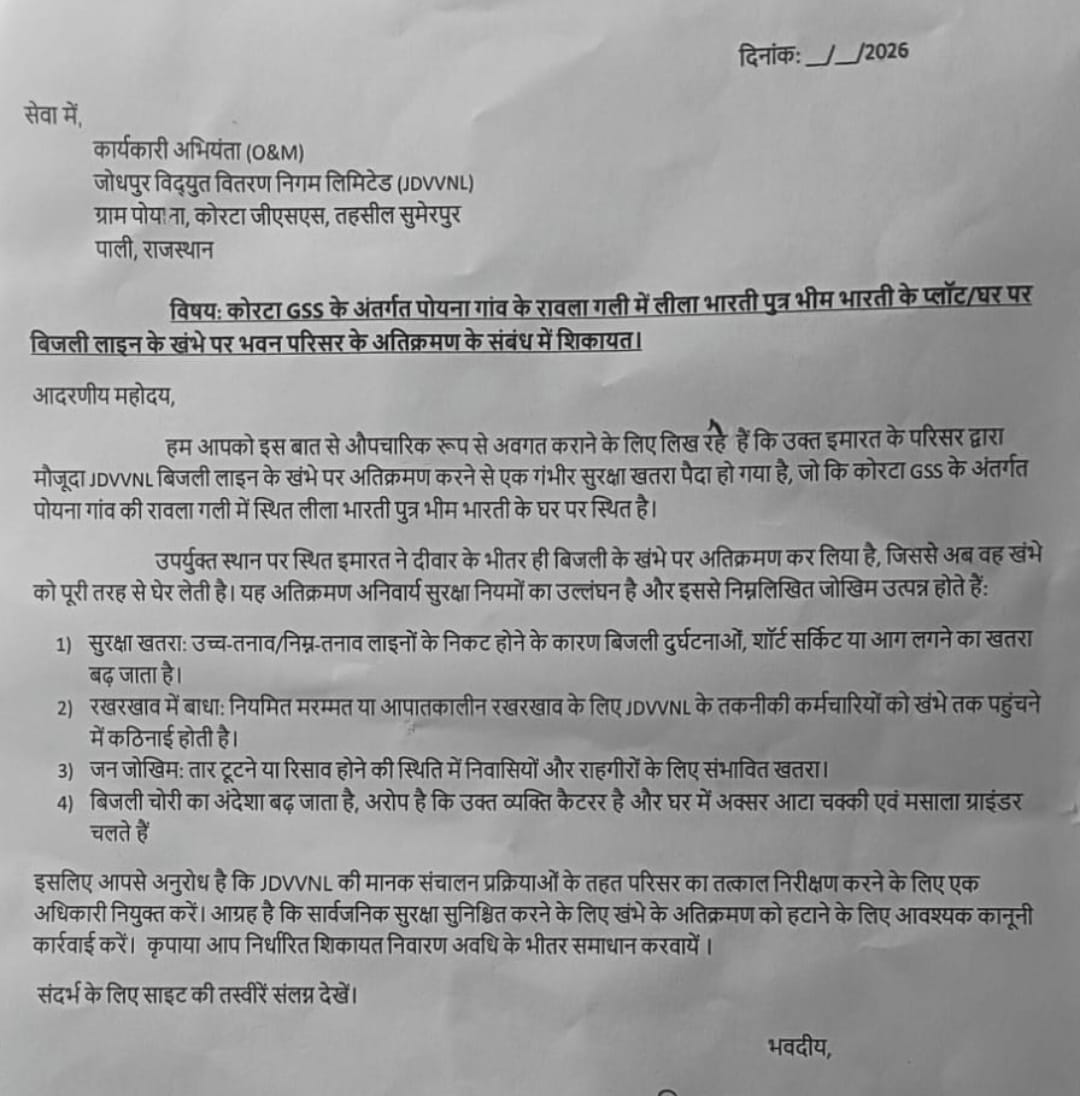 दिनांक: __/__/2026
सेवा में,
कार्यकारी अभियंता (O&M)
जोधपुर विद्युत वितरण निगम लिमिटेड (JDVVNL)
ग्राम पोयाना, कोरटा जीएसएस, तहसील सुमेरपुर
पाली, राजस्थान
विषय: कोरटा GSS के अंतर्गत पोयना गांव के रावला गली में लीला भारती पुत्र भीम भारती के प्लॉट/घर पर
बिजली लाइन के खंभे पर भवन परिसर के अतिक्रमण के संबंध में शिकायत।
आदरणीय महोदय,
हम आपको इस बात से औपचारिक रूप से अवगत कराने के लिए लिख रहे हैं कि उक्त इमारत के परिसर द्वारा
मौजूदा JDVVNL बिजली लाइन के खंभे पर अतिक्रमण करने से एक गंभीर सुरक्षा खतरा पैदा हो गया है, जो कि कोरटा GSS के अंतर्गत
पोयना गांव की रावला गली में स्थित लीला भारती पुत्र भीम भारती के घर पर स्थित है।
उपर्युक्त स्थान पर स्थित इमारत ने दीवार के भीतर ही बिजली के खंभे पर अतिक्रमण कर लिया है, जिससे अब वह खंभे
को पूरी तरह से घेर लेती है। यह अतिक्रमण अनिवार्य सुरक्षा नियमों का उल्लंघन है और इससे निम्नलिखित जोखिम उत्पन्न होते हैं:
1) सुरक्षा खतरा: उच्च-तनाव/निम्न-तनाव लाइनों के निकट होने के कारण बिजली दुर्घटनाओं, शॉर्ट सर्किट या आग लगने का खतरा
बढ़ जाता है।
2) रखरखाव में बाधा: नियमित मरम्मत या आपातकालीन रखरखाव के लिए JDVVNL के तकनीकी कर्मचारियों को खंभे तक पहुंचने
में कठिनाई होती है।
3) जन जोखिम: तार टूटने या रिसाव होने की स्थिति में निवासियों और राहगीरों के लिए संभावित खतरा।
4) बिजली चोरी का अंदेशा बढ़ जाता है, अरोप है कि उक्त व्यक्ति कैटरर है और घर में अक्सर आटा चक्की एवं मसाला ग्राइंडर
चलते हैं
इसलिए आपसे अनुरोध है कि JDVVNL की मानक संचालन प्रक्रियाओं के तहत परिसर का तत्काल निरीक्षण करने के लिए एक
अधिकारी नियुक्त करें। आग्रह है कि सार्वजनिक सुरक्षा सुनिश्चित करने के लिए खंभे के अतिक्रमण को हटाने के लिए आवश्यक कानूनी
कार्रवाई करें। कृपाया आप निर्धारित शिकायत निवारण अवधि के भीतर समाधान करवायें ।
संदर्भ के लिए साइट की तस्वीरें संलग्न देखें।
भवदीय,